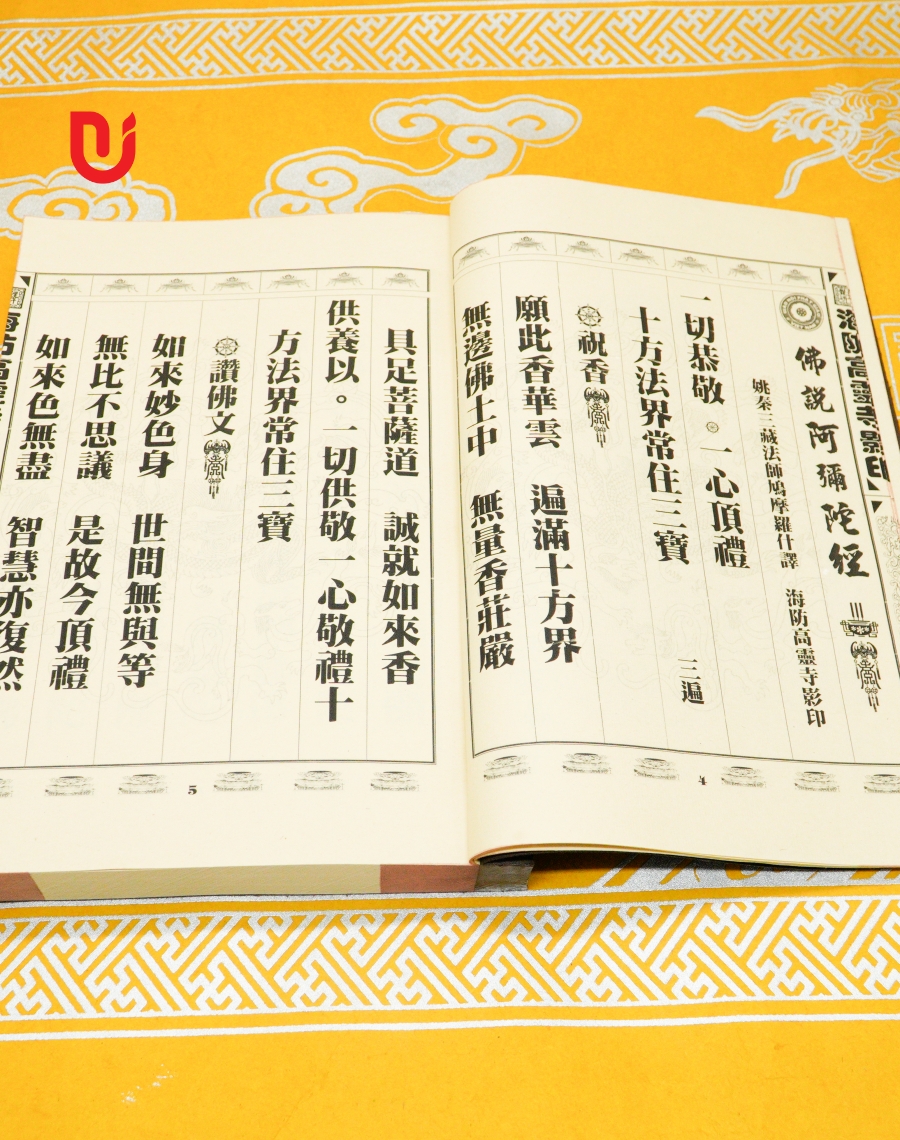 海防高靈寺影印
佛說阿彌陀經
姚秦三藏法師鳩摩羅什譯 海防高靈寺影印
一切恭敬 一心頂禮
十方法界常住三寶 三遍
祝香
願此香華雲 遍滿十方界
無邊佛土中 無量香莊嚴
4
具足菩薩道 誠就如來香
供養以。一切供敬一心敬禮十
方法界常住三寶
讚佛文
如來妙色身 世間無與等
無比不思議 是故今頂禮
如來色無盡 智慧亦復然
5